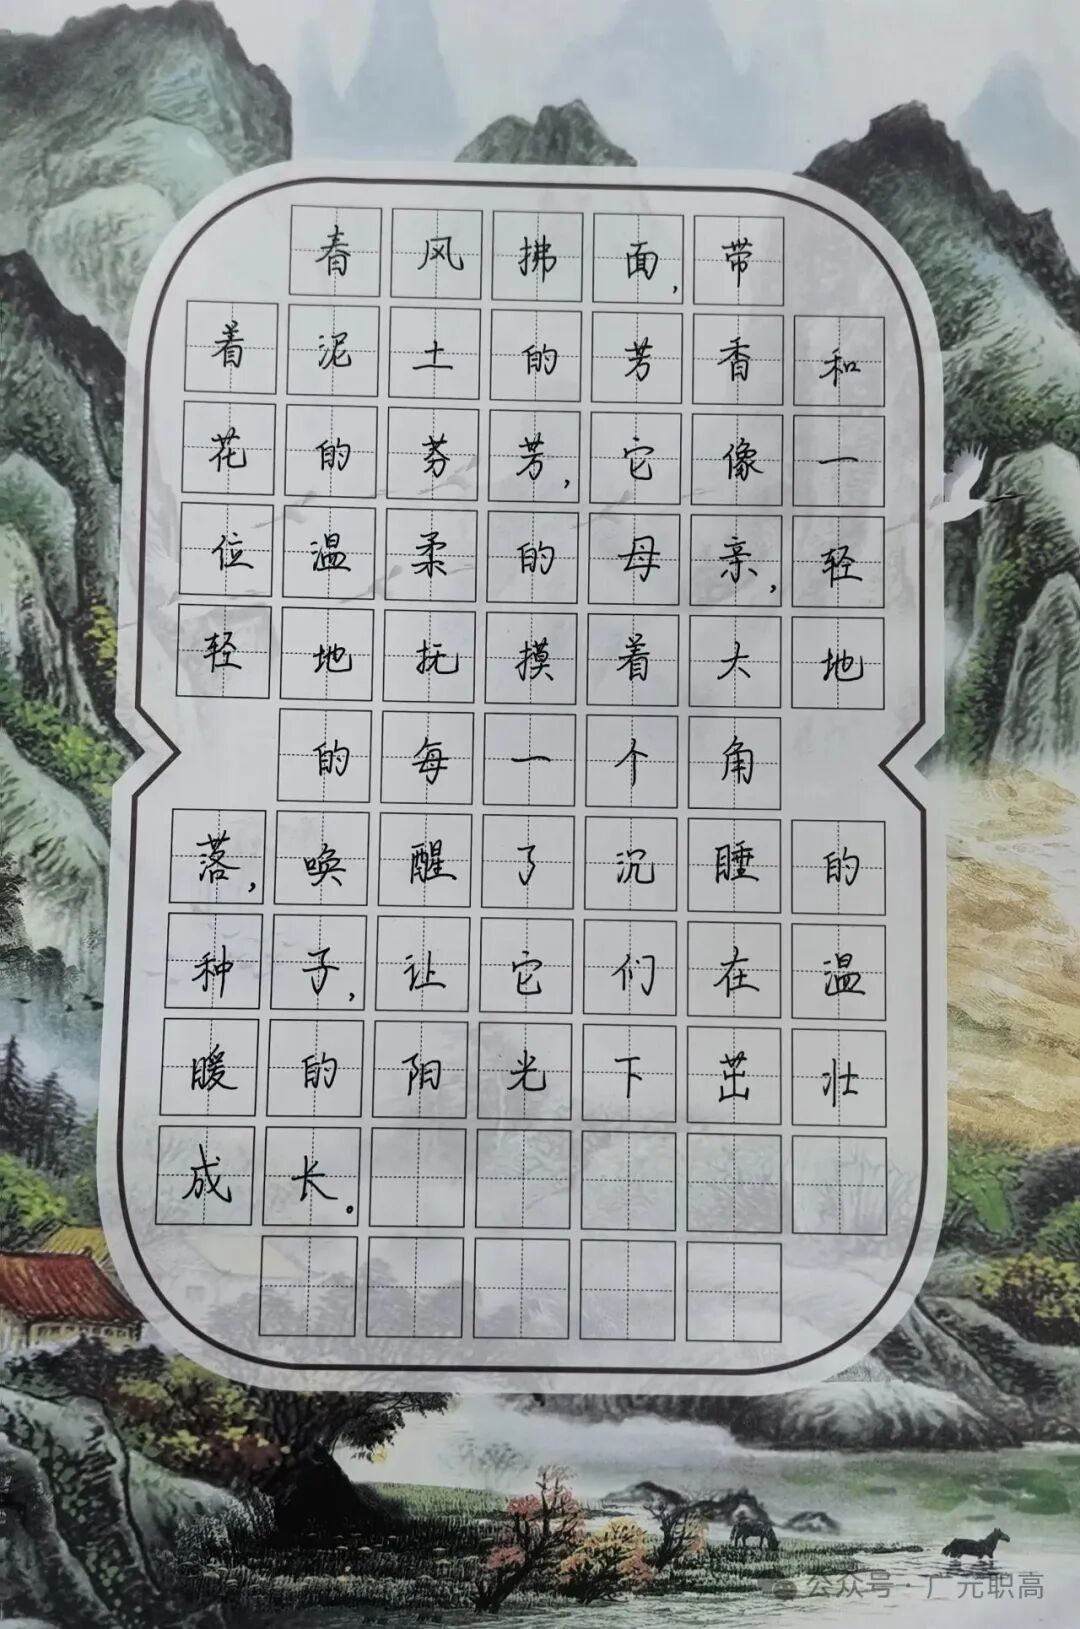 春风拂面,带
着泥土的芳香和
花的芬芳,它像一
位温柔的母亲,轻
轻地抚摸着大地
的每一个角
落,唤醒了沉睡的
种子,让它们在温
暖的阳光下茁壮
成长。
公众号·广元职高